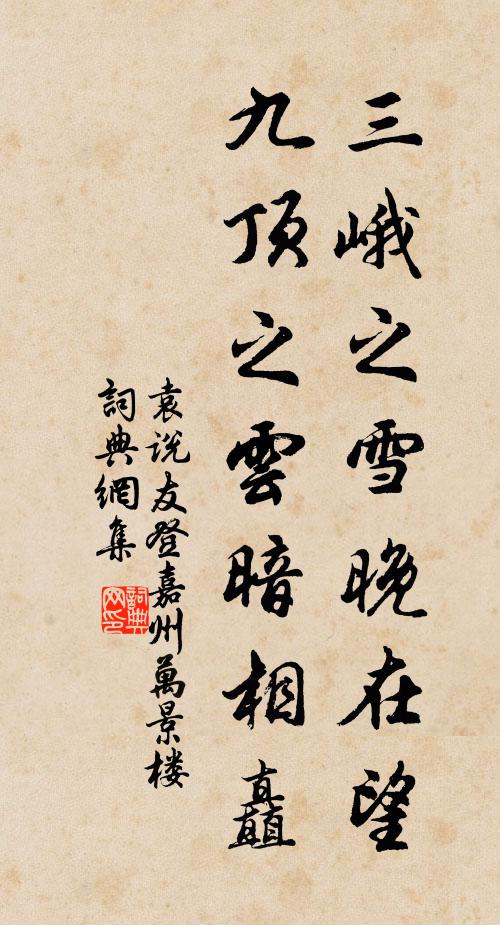 三峨之雪晚在望
九顶之雲暗相矗
袁说友登嘉州萬景楼
詞典網集
詞典
网印